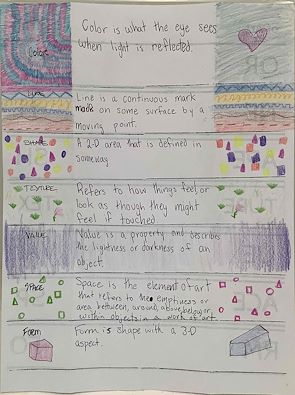 Color
Color is what the eye sees
when light is reflected.
Line
Line is a continuous mark
made on some surface by a
moving point.
Shape
A 2-D area that is defined in
someway
Texture
Refers to how things feel, or
look as though they might
feel if touched
Value
Value is a property and describes
the lightness or darkness of an
object.
Space
Space is the element of art
that refers to the emptiness or
area between, around, above, below, or
within objects in a work of art.
Form
Form is shape with a 3-D
aspect.